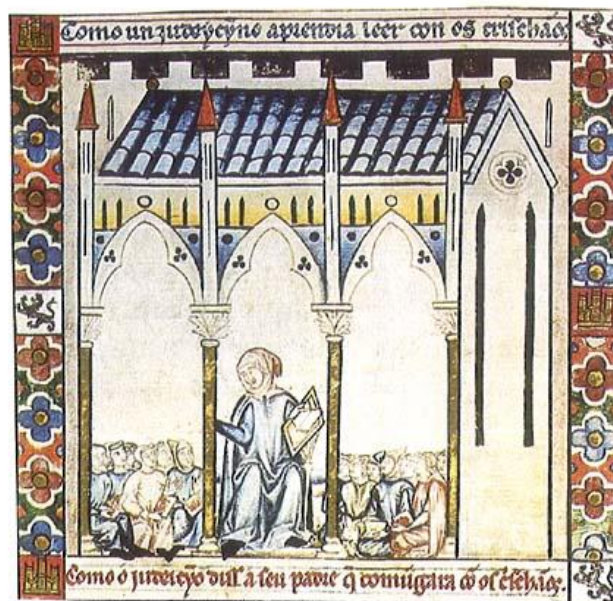 Como un judeucyno aprendia leer con os crischãos
Como o judeucyo diss a seu padre q̃ comũgara cõ os c̃schãos.